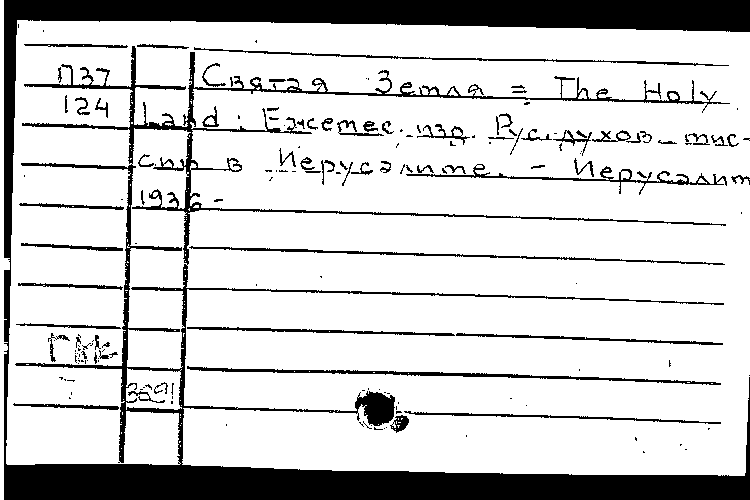 П37 Святая Земля = The Holy
124 Land : Ежемес. изд. Рус. духов. мис-
сии в Иерусалиме. - Иерусалим
1936 -